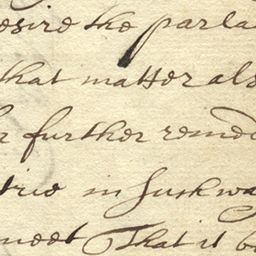 desire the parla
that matter als
further remed
in such wa
meet That it b